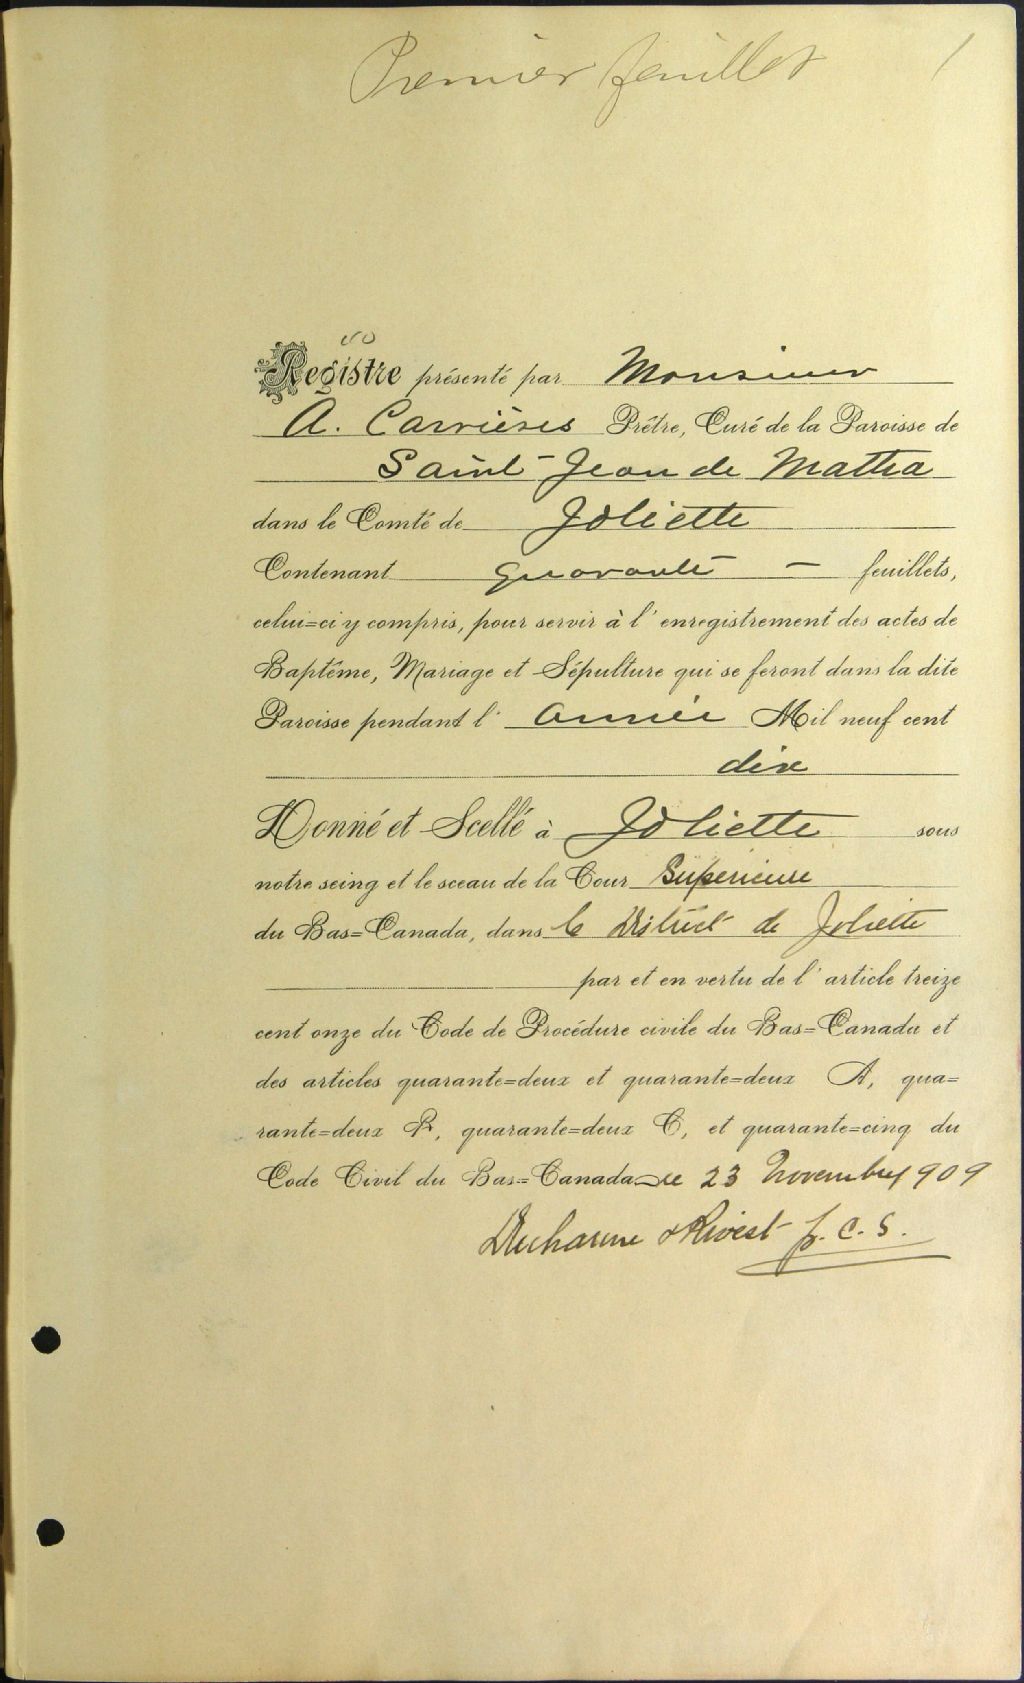 Premier feuillet 1
Registre présenté par Monsieur
A. Carrières Prêtre, Curé de la Paroisse de
Saint-Jean de Matha
dans le Comté de Joliette
Contenant quarante - feuillets,
celui=ci y compris, pour servir à l'enregistrement des actes de
Baptême, Mariage et Sépulture qui se feront dans la dite
Paroisse pendant l'année Mil neuf cent
dix
Donné et Scellé à Joliette sous
notre seing et le sceau de la Cour Supérieure
du Bas=Canada, dans le District de Joliette
par et en vertu de l'article treize
cent onze du Code de Procédure civile du Bas=Canada et
des articles quarante=deux et quarante=deux A, qua=
rante=deux B, quarante=deux C, et quarante=cinq du
Code Civil du Bas=Canada ce 23 Novembre 1909
Ducharme & Rivest p. C. S.